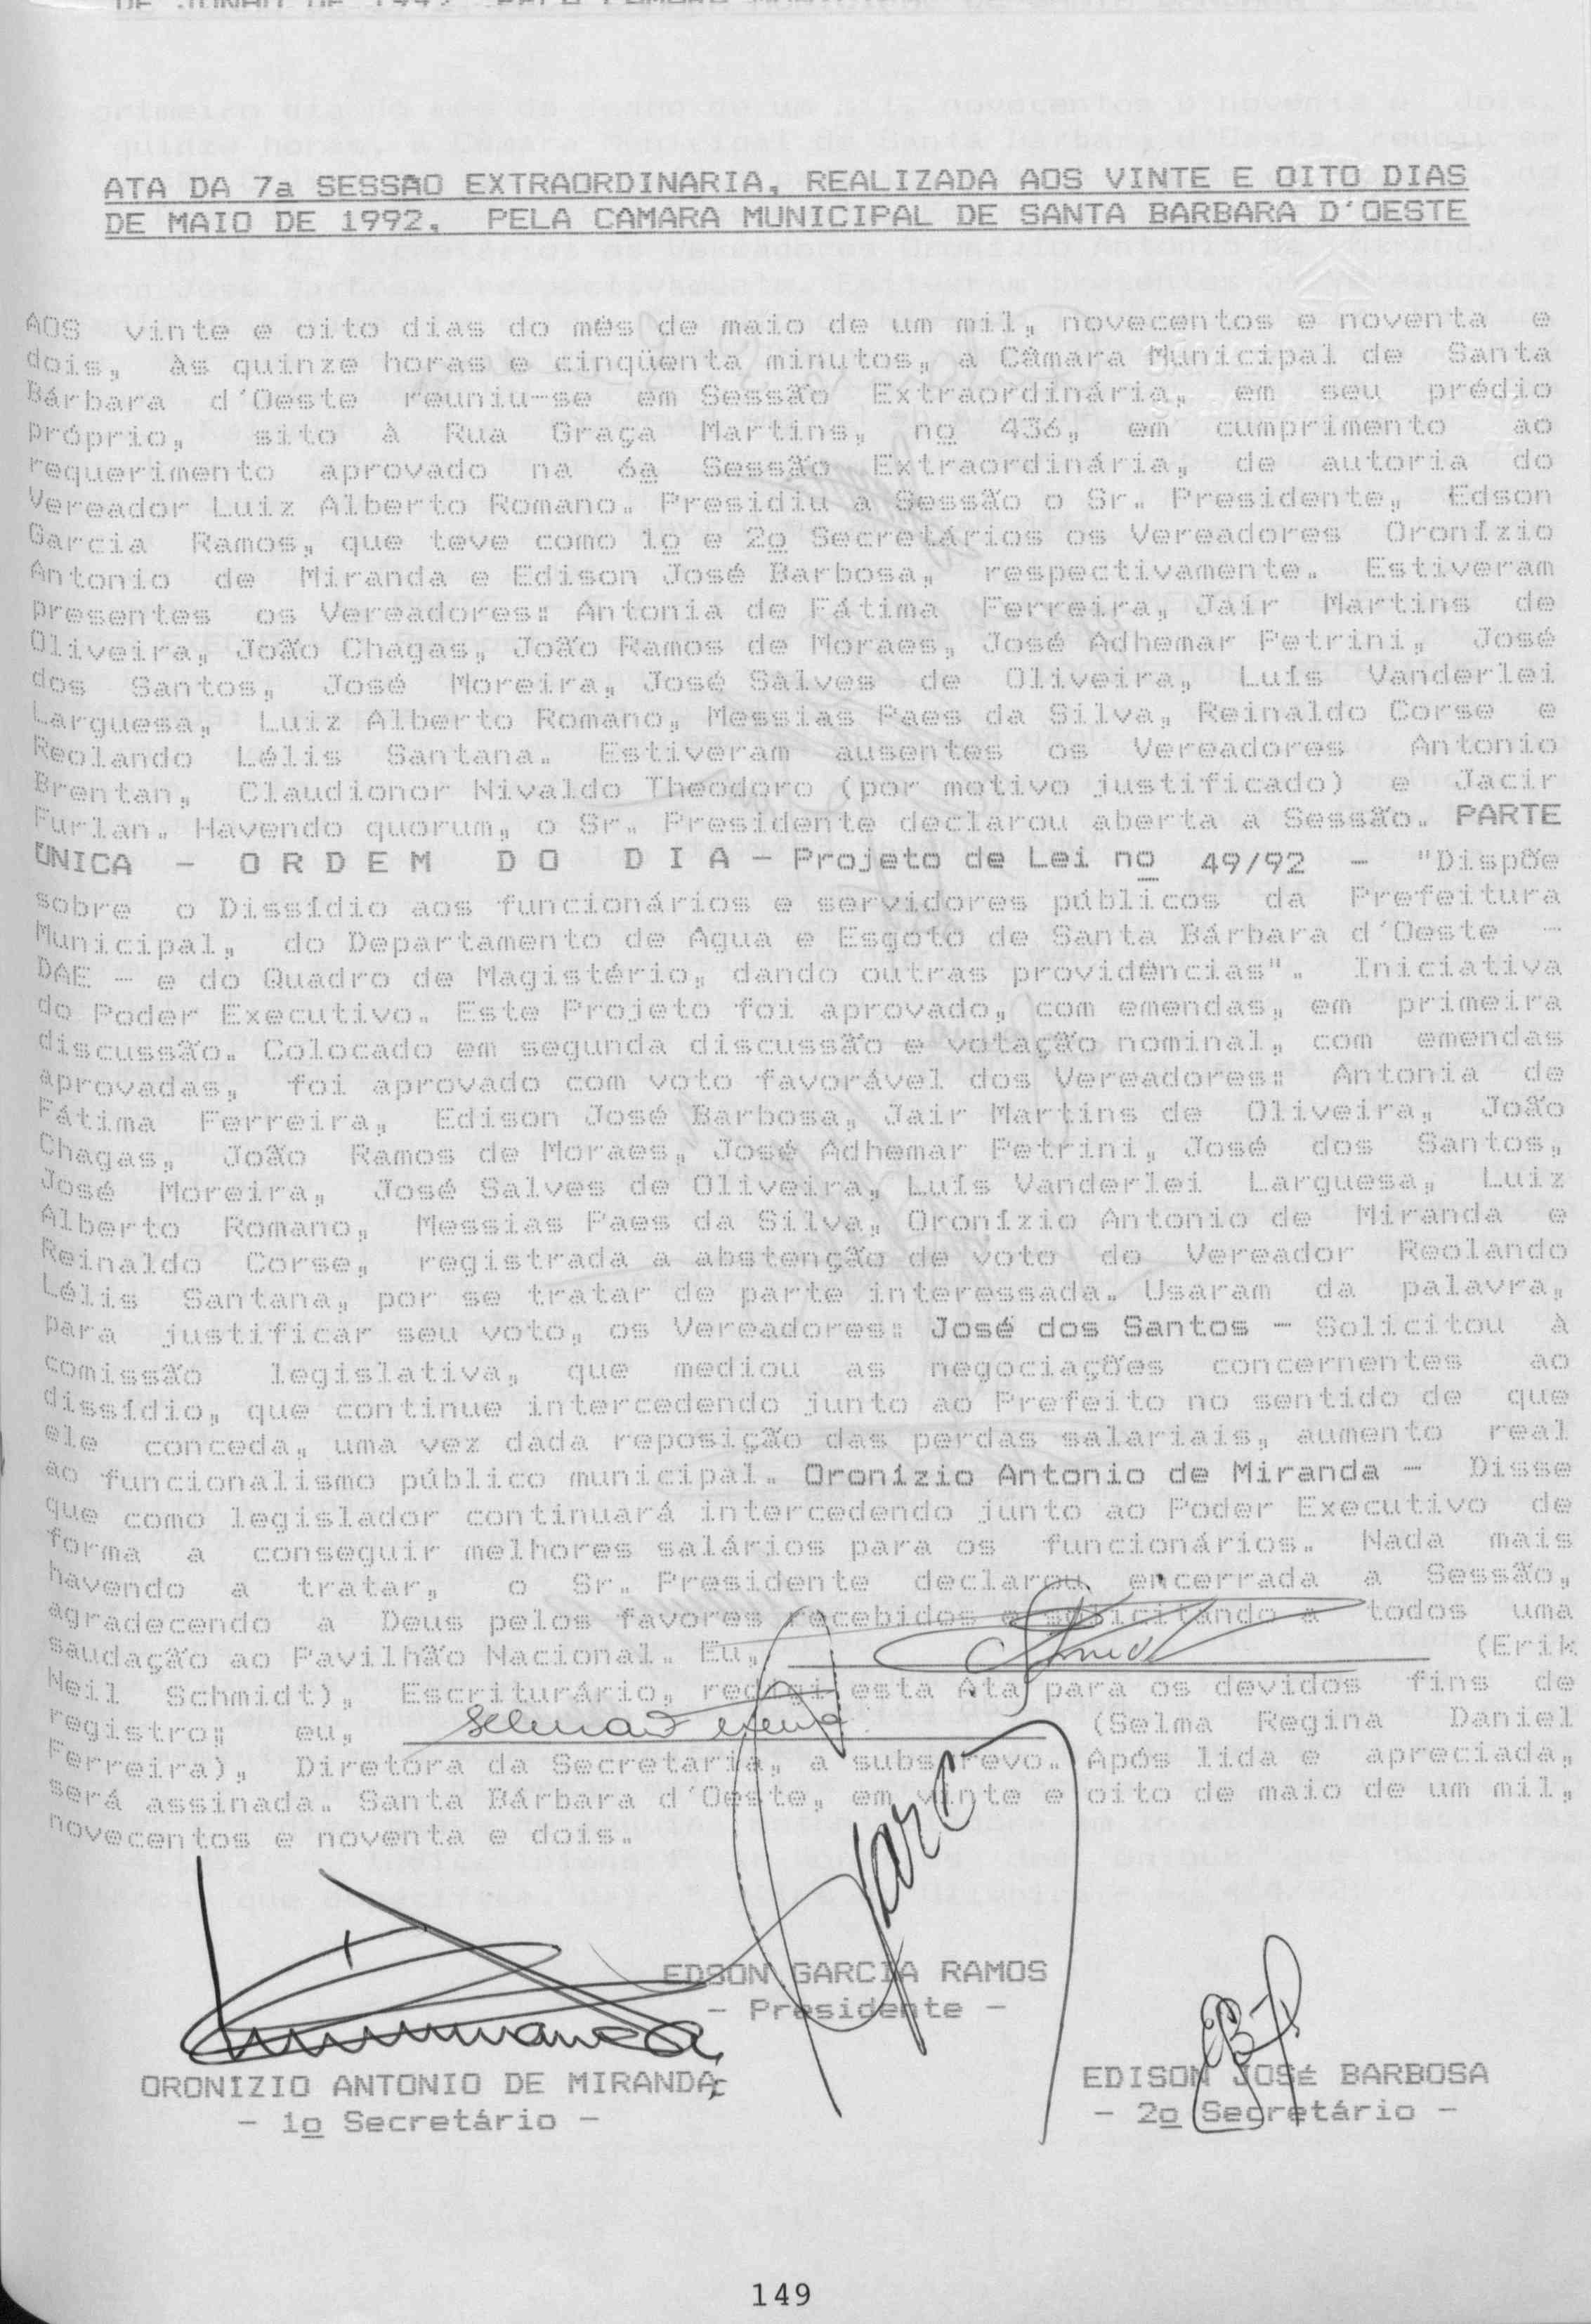 ATA DA 7a SESSÃO EXTRAORDINARIA, REALIZADA AOS VINTE E OITO DIAS
DE MAIO DE 1992, PELA CAMARA MUNICIPAL DE SANTA BARBARA D'OESTE
AOS vinte e oito dias do mês de maio de um mil, novecentos e noventa e
dois, às quinze horas e cinqüenta minutos, a Câmara Municipal de Santa
Bárbara d'Oeste reuniu-se em Sessão Extraordinária, em seu prédio
próprio, sito à Rua Graça Martins, no 436, em cumprimento ao
requerimento aprovado na 6a Sessão Extraordinária, de autoria do
Vereador Luiz Alberto Romano. Presidiu a Sessão o Sr. Presidente, Edson
Garcia Ramos, que teve como 1o e 2o Secretários os Vereadores Oronízio
Antonio de Miranda e Edison José Barbosa, respectivamente. Estiveram
presentes os Vereadores: Antonia de Fátima Ferreira, Jair Martins de
Oliveira, João Chagas, João Ramos de Moraes, José Adhemar Petrini, José
dos Santos, José Moreira, José Salves de Oliveira, Luís Vanderlei
Larguesa, Luiz Alberto Romano, Messias Paes da Silva, Reinaldo Corse e
Reolando Lélis Santana. Estiveram ausentes os Vereadores Antonio
Brentan, Claudionor Nivaldo Theodoro (por motivo justificado) e Jacir
Furlan. Havendo quorum, o Sr. Presidente declarou aberta a Sessão. PARTE
ÚNICA - O R D E M D O D I A - Projeto de Lei no 49/92 - "Dispõe
sobre o Dissídio aos funcionários e servidores públicos da Prefeitura
Municipal, do Departamento de Agua e Esgoto de Santa Bárbara d'Oeste -
DAE - e do Quadro de Magistério, dando outras providências". Iniciativa
do Poder Executivo. Este Projeto foi aprovado, com emendas, em primeira
discussão. Colocado em segunda discussão e votação nominal, com emendas
aprovadas, foi aprovado com voto favorável dos Vereadores: Antonia de
Fátima Ferreira, Edison José Barbosa, Jair Martins de Oliveira, João
Chagas, João Ramos de Moraes, José Adhemar Petrini, José dos Santos,
José Moreira, José Salves de Oliveira, Luís Vanderlei Larguesa, Luiz
Alberto Romano, Messias Paes da Silva, Oronízio Antonio de Miranda e
Reinaldo Corse, registrada a abstenção de voto do Vereador Reolando
Lélis Santana, por se tratar de parte interessada. Usaram da palavra,
para justificar seu voto, os Vereadores: José dos Santos - Solicitou à
comissão legislativa, que mediou as negociações concernentes ao
dissídio, que continue intercedendo junto ao Prefeito no sentido de que
ele conceda, uma vez dada reposição das perdas salariais, aumento real
ao funcionalismo público municipal. Oronízio Antonio de Miranda - Disse
que como legislador continuará intercedendo junto ao Poder Executivo de
forma a conseguir melhores salários para os funcionários. Nada mais
havendo a tratar, o Sr. Presidente declarou encerrada a Sessão,
agradecendo a Deus pelos favores recebidos e solicitando a todos uma
saudação ao Pavilhão Nacional. Eu, (Erik
Neil Schmidt), Escriturário, redigi esta Ata para os devidos fins de
registro; eu, (Selma Regina Daniel
Ferreira), Diretora da Secretaria, a subscrevo. Após lida e apreciada,
será assinada. Santa Bárbara d'Oeste, em vinte e oito de maio de um mil,
novecentos e noventa e dois.
EDSON GARCIA RAMOS
- Presidente -
ORONIZIO ANTONIO DE MIRANDA
- 1o Secretário -
EDISON JOSÉ BARBOSA
- 2o Secretário -
149